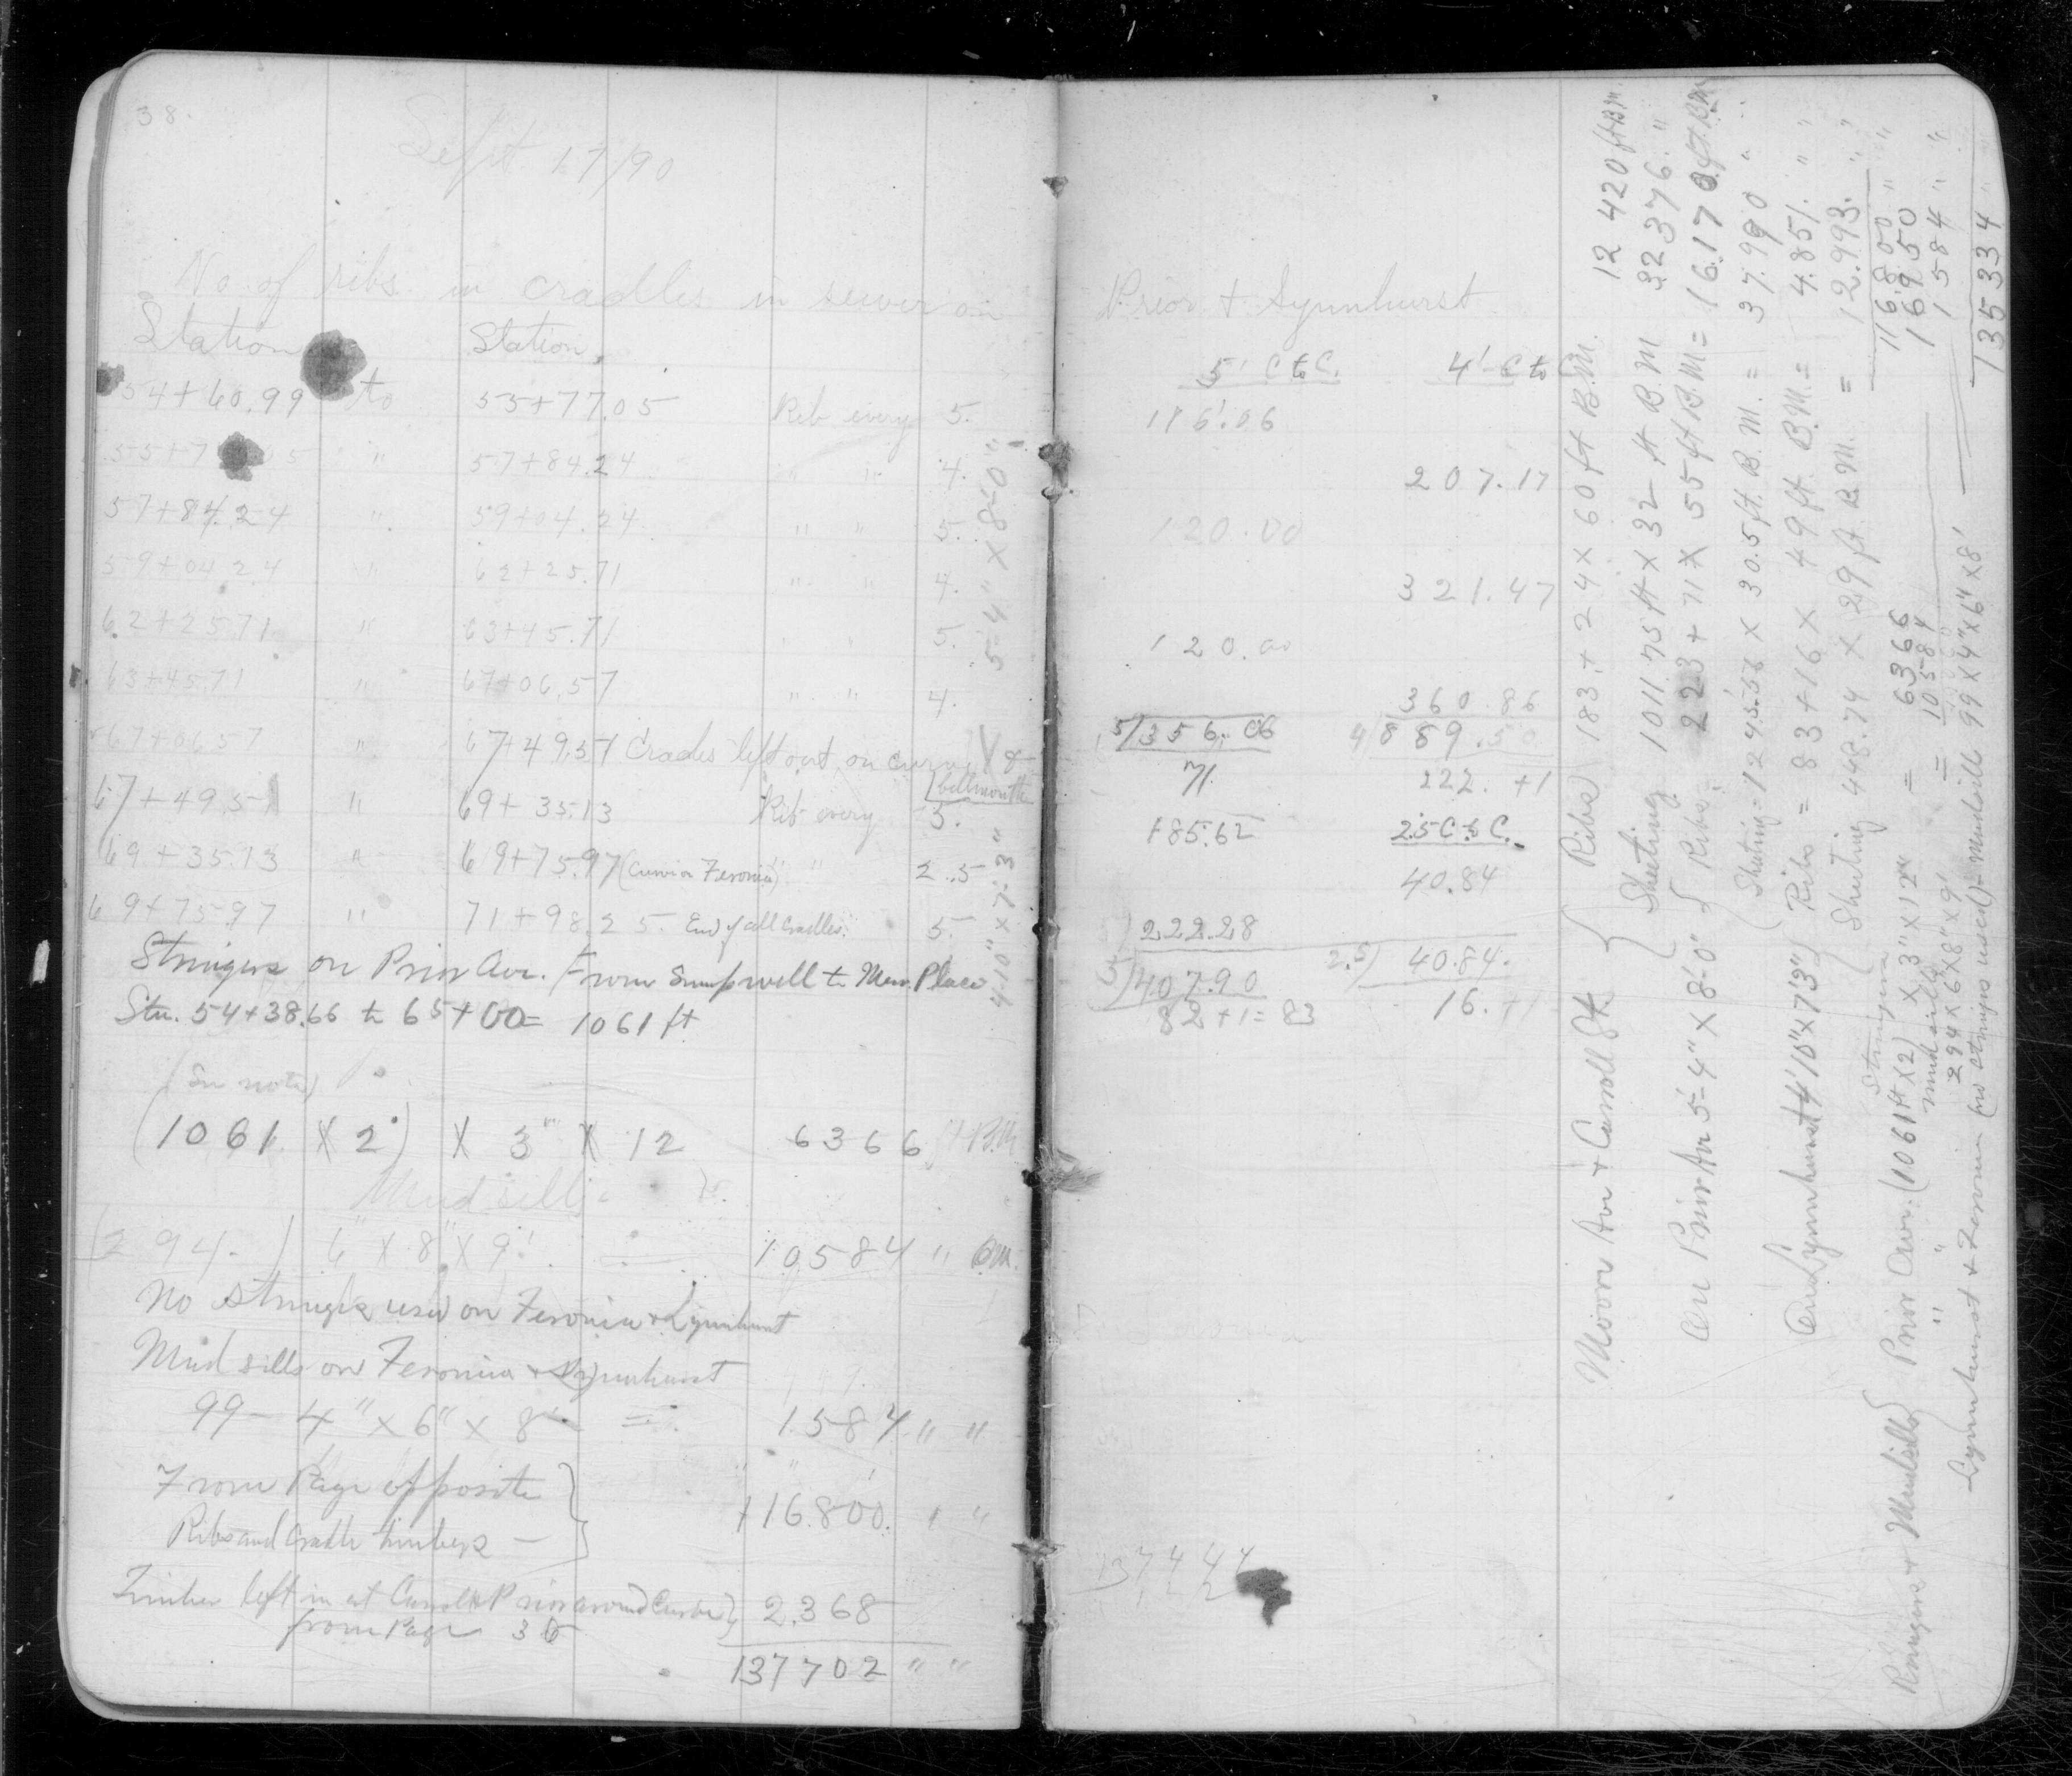 38.
Sept 17/90
No. of ribs in cradles in sewer on
Station Station.
54+60.99 to 55+77.05 Rib every 5.
55+77.05 " 57+84.24 " " 4.
57+84.24 " 59+04.24 " " 5.
59+04.24 " 62+25.71 " " 4.
62+25.71 " 63+45.71 " " 5.
63+45.71 " 67+06.57 " " 4.
5'-4" X 8'-0"
67+06.57 " 67+49.51 Cradles left out on curve & bellmouth
67+49.51 " 69+35.13 Rib every 5.
69+35.13 " 69+75.97 (Curve on Feronia) " 2.5
69+75.97 " 71+98.25 End of all Cradles. 5.
4'-10" x 7'-3"
Stringers on Prior Ave. From Sumpwell to Merr. Place
Sta. 54+38.66 to 65+00= 1061 ft
(See notes)
(1061 X 2) X 3" X 12 6366 ft B.M.
Mud sills
(294.) 6" X 8" X 9' = 10584 " B.M.
No Stringers used on Feronia & Lynnhurst
Mud sills on Feronia & Lynnhurst
99 - 4" x 6" x 8' = 1584 " "
From Page opposite
Ribs and Cradle timbers — } +16.800. " "
Timber left in at Carroll & Prior around Curve } 2.368
from Page 36
137702 " "
Prior & Lynnhurst
5' C to C. 4' C to C
116.06
207.17
120.00
321.47
120.00
360.86
5/356.06 4/889.50
71. 222. +1
185.62 2.5 C to C.
40.84
222.28
5)407.90 2.5) 40.84.
82+1= 83 16. +1
137444
Moore Av & Carroll St. { Ribs 183 + 24 x 60 ft B.M. 12 420 ft B.M.
Sheeting 1011.75 ft x 32 ft B.M 32376. "
On Prior Av 5'-4" x 8'-0" { Ribs. 223 + 71 x 55 ft B.M. = 16170 ft. B.M.
Sheeting = 1245.56 x 30.5 ft. B.M. = 37.990 "
On Lynnhurst 4'10" x 7'3" { Ribs = 83+16 x 49 ft. B.M. = 4.851. "
Sheeting 448.74 x 29 ft. B.M. = 12.993. "
116.800 "
Stringers
Stringers & Mudsills { Prior Ave. (1061 ft x 2) x 3" x 12" = 6366 16950 "
Mud sills
" " 294 x 6" x 8" x 9' = 10584
Lynnhurst & Feronia (no strings used) - Mudsills 99 x 4" x 6" x 8' 1584 "
135334 "